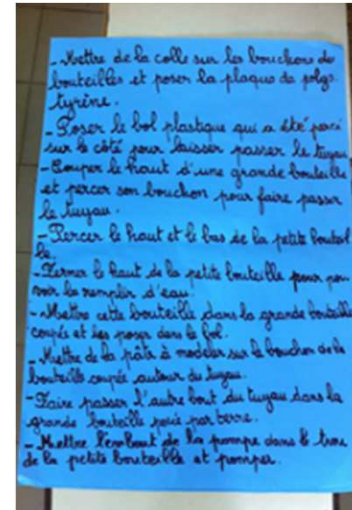 - Mettre de la colle sur les bouchons de
bouteilles et poser la plaque de polys-
tyrène.
- Poser le bol plastique qui a été percé
sur le côté pour laisser passer le tuyau
- Couper le haut d'une grande bouteille
et percer son bouchon pour faire passer
le tuyau.
- Percer le haut et le bas de la petite bouteil
le.
- Fermer le haut de la petite bouteille pour pou
voir la remplir d'eau.
- Mettre cette bouteille dans la grande bouteille
coupée et les poser dans le bol.
- Mettre de la pâte à modeler sur le bouchon de la
bouteille coupée autour du tuyau.
- Faire passer l'autre bout du tuyau dans la
grande bouteille posée par terre.
- Mettre l'embout de la pompe dans le trou
de la petite bouteille et pomper.